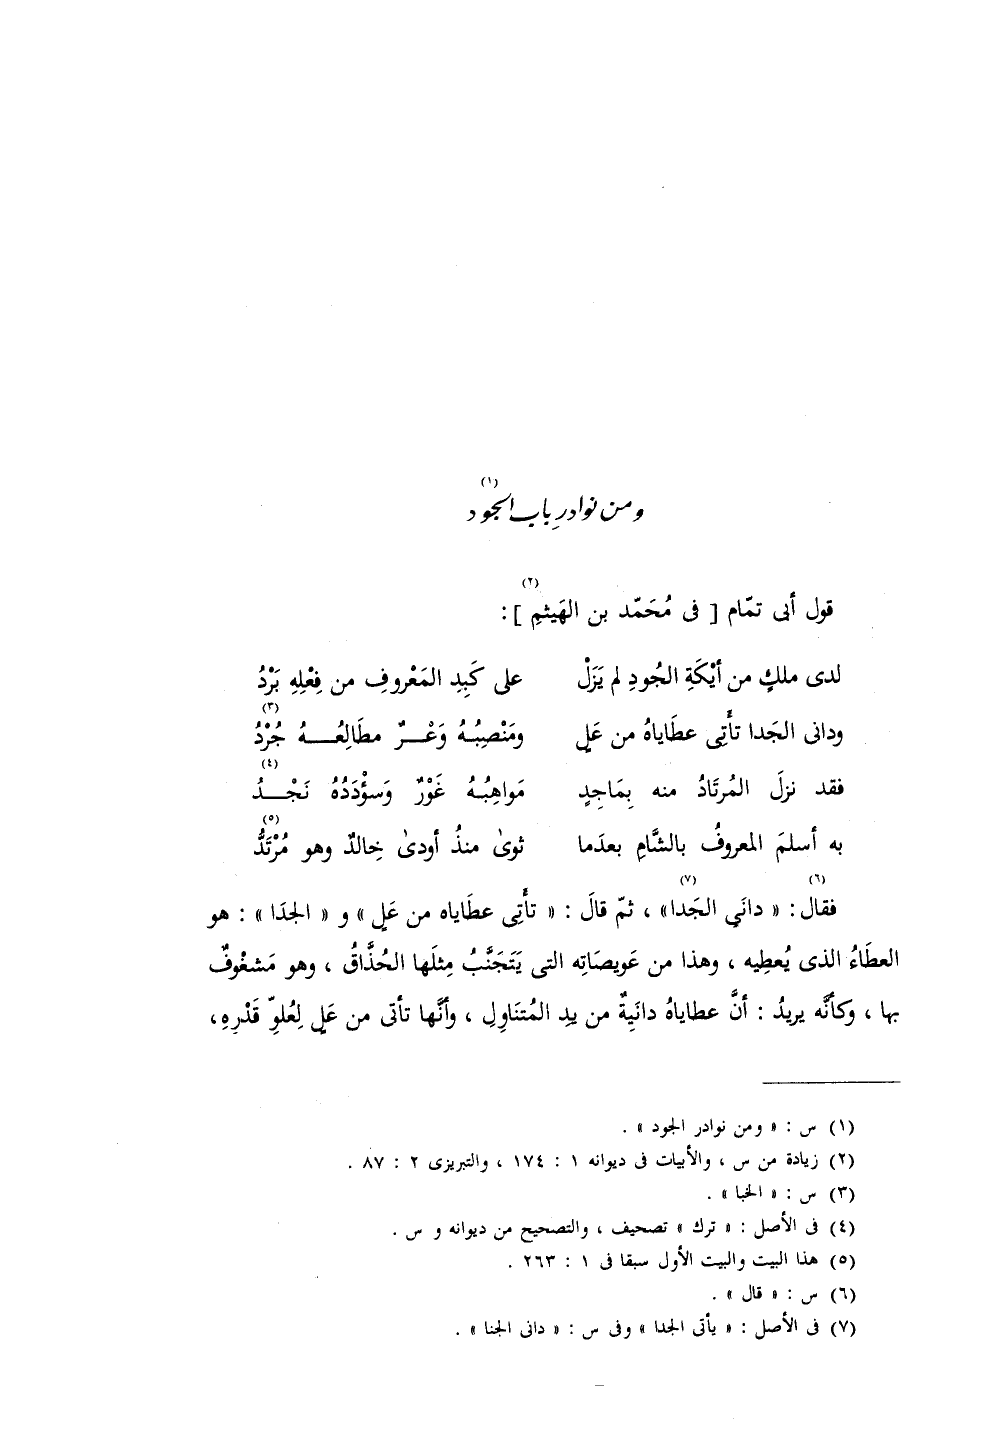 ومن نوادر باب الجود (١)
قول أبى تمّام [ فى مُحَمّد بن الهَيثمِ ] (٢) :
لدى ملكٍ من أيْكَةِ الجُودِ لم يَزَلْ على كَبِدِ المَعْروفِ من فِعْلِهِ بَرْدُ
ودانى الجَدا تأْتِى عطَاياهُ من عَلٍ ومَنْصِبُهُ وَعْرٌ مطَالِعُهُ جُرْدُ (٣)
فقد نزلَ المُرتَادُ منه بِمَاجِدٍ مَواهِبُهُ غَوْرٌ وَسؤْدَدُهُ نَجْدُ (٤)
به أسلمَ المعروفُ بالشَّامِ بعدَما ثوىٰ منذُ أودىٰ خالدٌ وهو مُرْتَدُّ (٥)
فقال (٦) : « دانَي الجَدا» (٧) ، ثمّ قالَ : « تأْتِى عطَاياه من عَلٍ » و « الجدَا » : هو
العطَاءُ الذى يُعطِيه ، وهذا من عَويصَاتِه التى يَتَجَنَّبُ مِثلَها الحُذَّاقُ ، وهو مَشغْوفٌ
بها ، وكأنَّه يريدُ : أنَّ عطاياهُ دانَيِةٌ من يدِ المُتنَاوِلِ ، وأنَّها تأتى من عَلٍ لِعُلوِّ قَدْرِهِ،
(١) س : « ومن نوادر الجود » .
(٢) زيادة من س ، والأبيات فى ديوانه ١ : ١٧٤ ، والتبريزى ٢ : ٨٧ .
(٣) س : « الخبا » .
(٤) فى الأصل : « ترك » تصحيف ، والتصحيح من ديوانه و س .
(٥) هذا البيت والبيت الأول سبقا فى ١ : ٢٦٣ .
(٦) س : « قال » .
(٧) فى الأصل : « يأتى الجدا » وفى س : « دانى الجنا » .